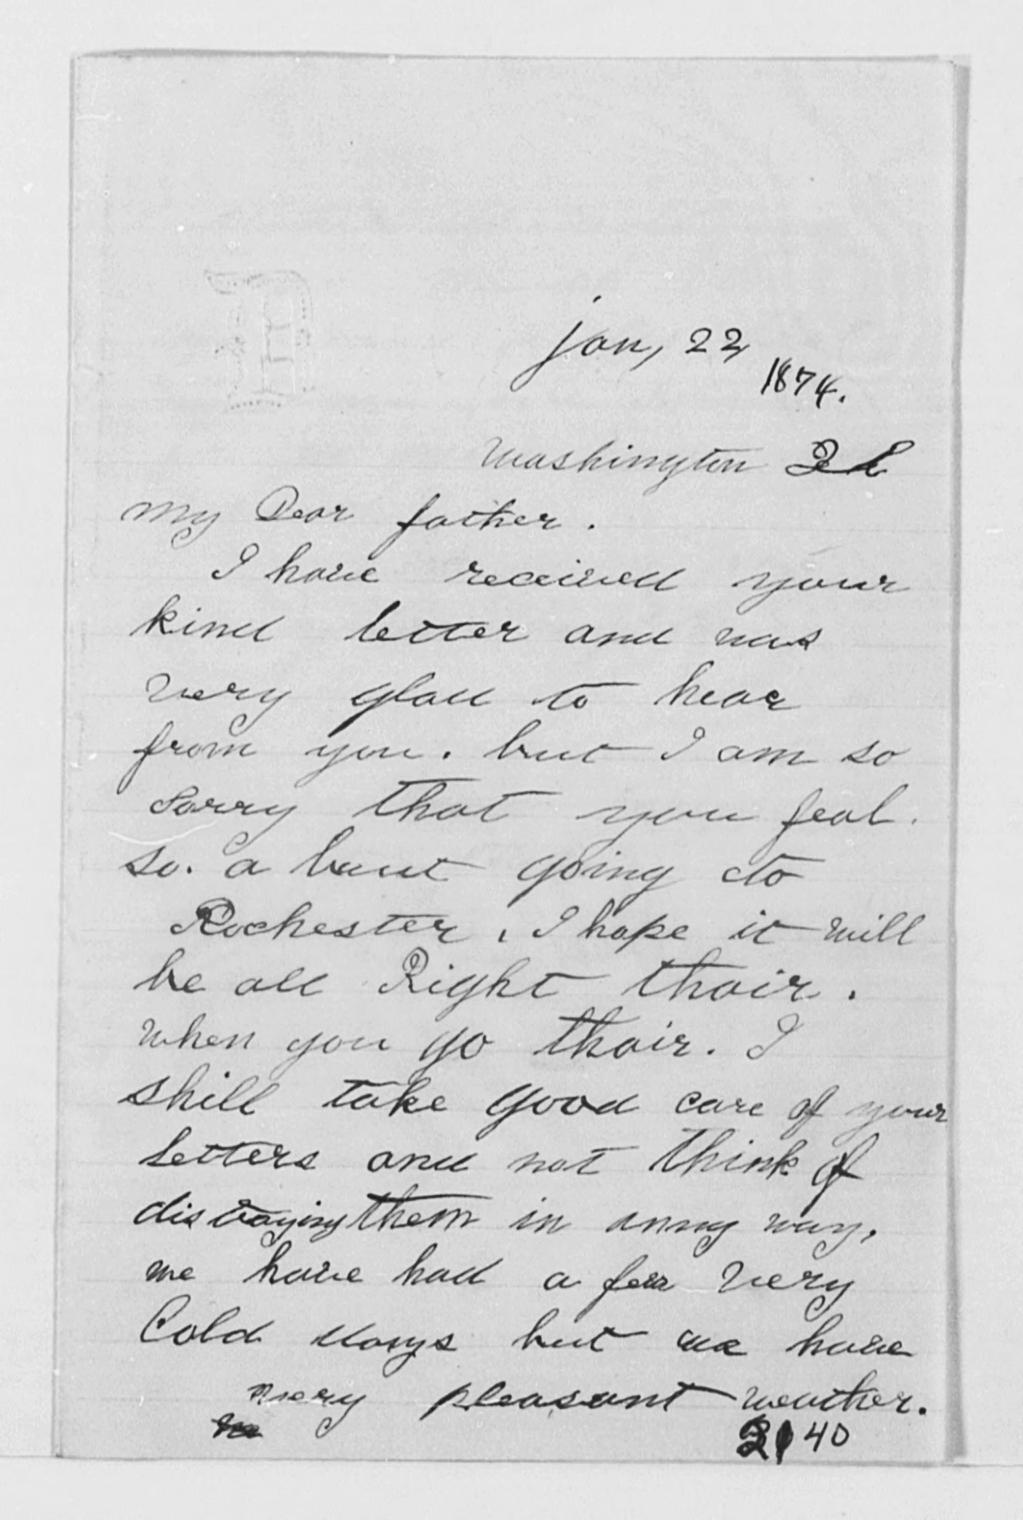 jan, 22
1874.
Washington
My Dear father.
I have received your
kind letter and was
very glad to hear
from you. but I am so
sorry that you feal.
so. a bout going to
Rochester, I hope it will
be all Right thair.
when you go thair. I
shill take good care of your
letters and not think of
distroying them in anny way,
we have had a few very
Cold days but we have
very pleasant weather.
40